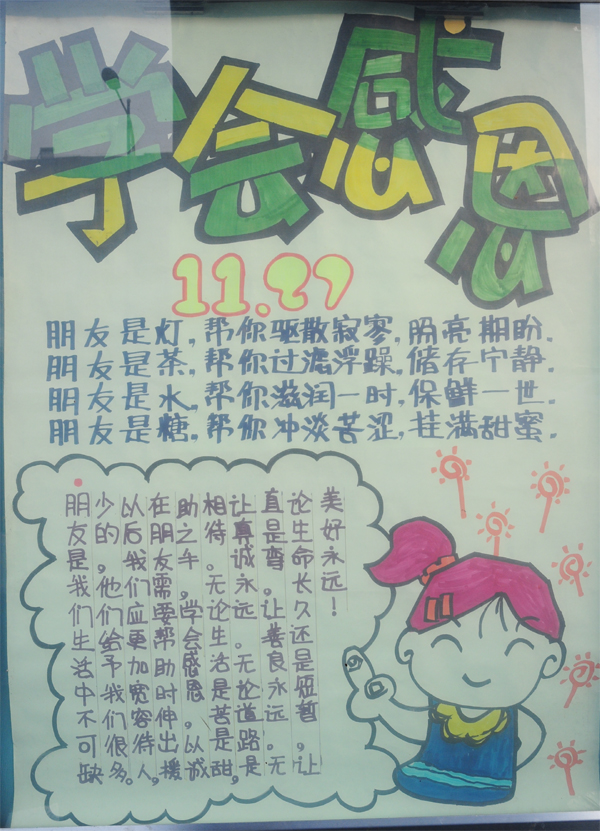 学会感恩
11.27
朋友是灯,帮你驱散寂寥,照亮期盼.
朋友是茶,帮你过滤浮躁,储存宁静.
朋友是水,帮你滋润一时,保鲜一世.
朋友是糖,帮你冲淡苦涩,挂满甜蜜.
朋友是我们生活中不可缺
少的,他们给予我们很多。
以后我们应更加宽容待人,
在朋友需要帮助时伸出援
助之手。学会感恩,以诚
相待。无论生活是苦是甜,
让真诚永远。无论道路是
直是弯。让善良永远。无
论生命长久还是短暂,让
美好永远!